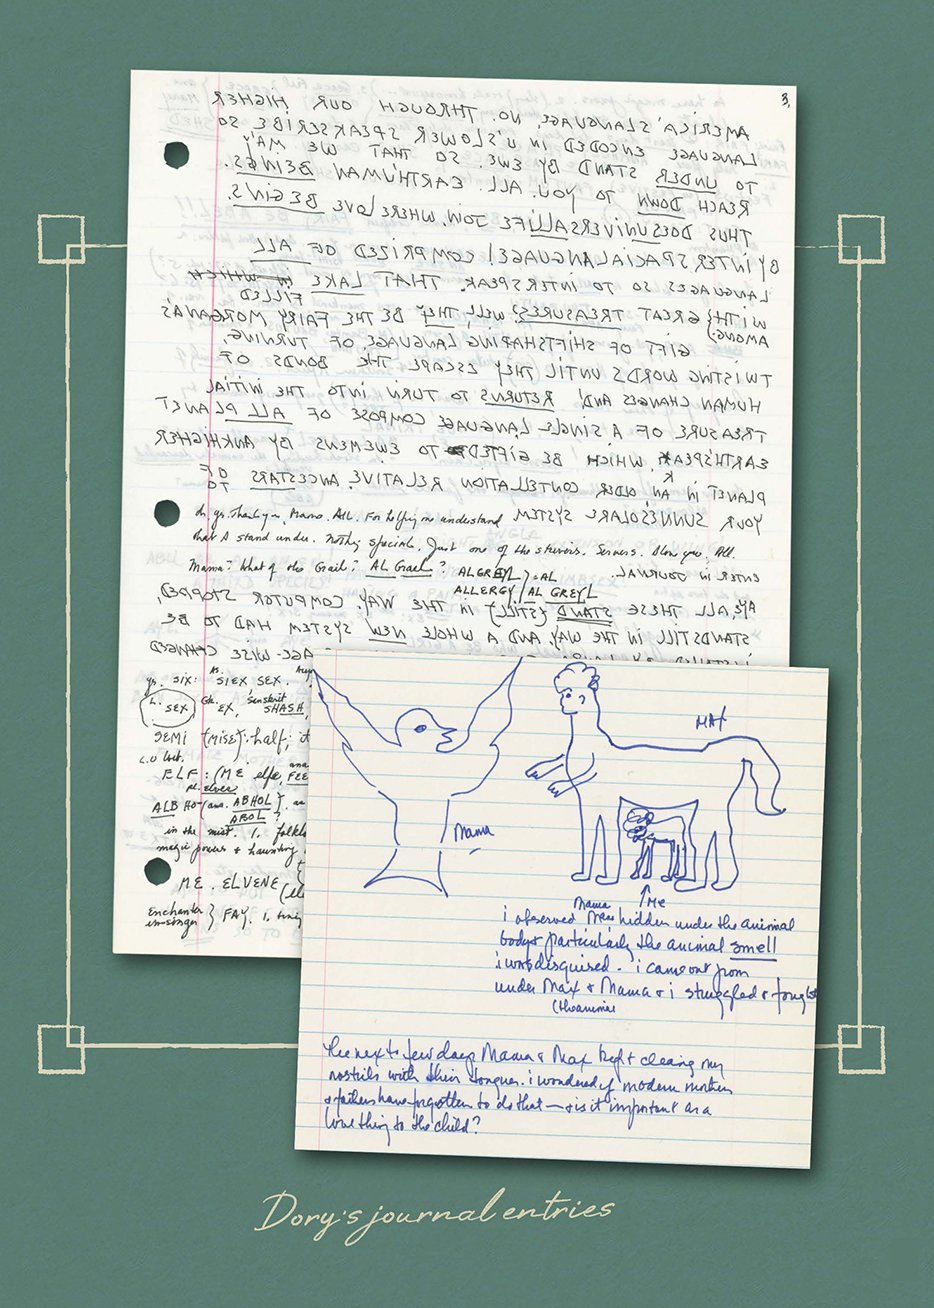 3,
AMERICA'S LANGUAGE, NO. THROUGH OUR HIGHER
LANGUAGE ENCODED IN U'S LOWER SPEAKSCRIBE SO
TO UNDER STAND BY EWE. SO THAT WE MAY
REACH DOWN TO YOU. ALL EARTH'HUMAN BEINGS.
THUS DOES UNIVERSALLIFE JOIN, WHERE LOVE BEGINS.
BY INTERSPACIALANGUAGE! COMPRIZED OF ALL
LANGUAGES SO TO INTERSPEAK. THAT LAKE WHICH
FILLED
WITH} GREAT TREASURES? WELL, THEY BE THE FAIRY MORGANA'S
AMONG}
GIFT OF SHIFTSHAPING LANGUAGE. OF TURNING,
TWISTING WORDS UNTIL THEY ESCAPE THE BONDS OF
HUMAN CHANGES AND! RETURNS TO TURN INTO THE INITIAL
TREASURE OF A SINGLE LANGUAGE COMPOSE OF ALL PLANET
EARTH'SPEAK, WHICH BE GIFTED TO EWEMENS BY ANKHIGHER
K
PLANET IN AN OLDER CONTELLATION RELATIVE ANCESTARS OF
TO
YOUR SUNNESSOLARE SYSTEM
oh yes. Thank you, Mama. All. For helping me understand
that I stand under. Nothing special. Just one of the stewers. Servers. Love you. All.
ENTER IN JOURNAL.
Mama? What of the Grail? AL Grael? ALGREYL} = AL
ALLERGY/AL GREYL
AYE, ALL THESE STAND {STILL} IN THE WAY. COMPUTOR STOPPED,
STANDSTILL IN THE WAY AND A WHOLE NEW SYSTEM HAD TO BE
AGE-WISE CHANGED
yr. SIX: AS. SIEX SEX.
L. SEX Gk. EX, Sanskrit SHASH,
SEMI {MISE}: half; it
ELF: (ME elfe,
ALB HO- (ana. ABHOL}
ABOL?
in the mist. 1. folklo
magic powers + haunting
ME. ELVENE
Enchanter} FAY. 1.
en-singer
Mama
MAX
Mama
↑Me
i observed Max hidden under the animal
body + particularly the animal smell
i was disguised. i came out from
under Max + Mama + i struggled + fought
(the animal
The next to few days Mama + Max kept cleaing my
nostrils with their tongues. i wondered if modern mothers
+ fathers have forgotten to do that — + is it important as a
love thing to the child?
Dory's journal entries